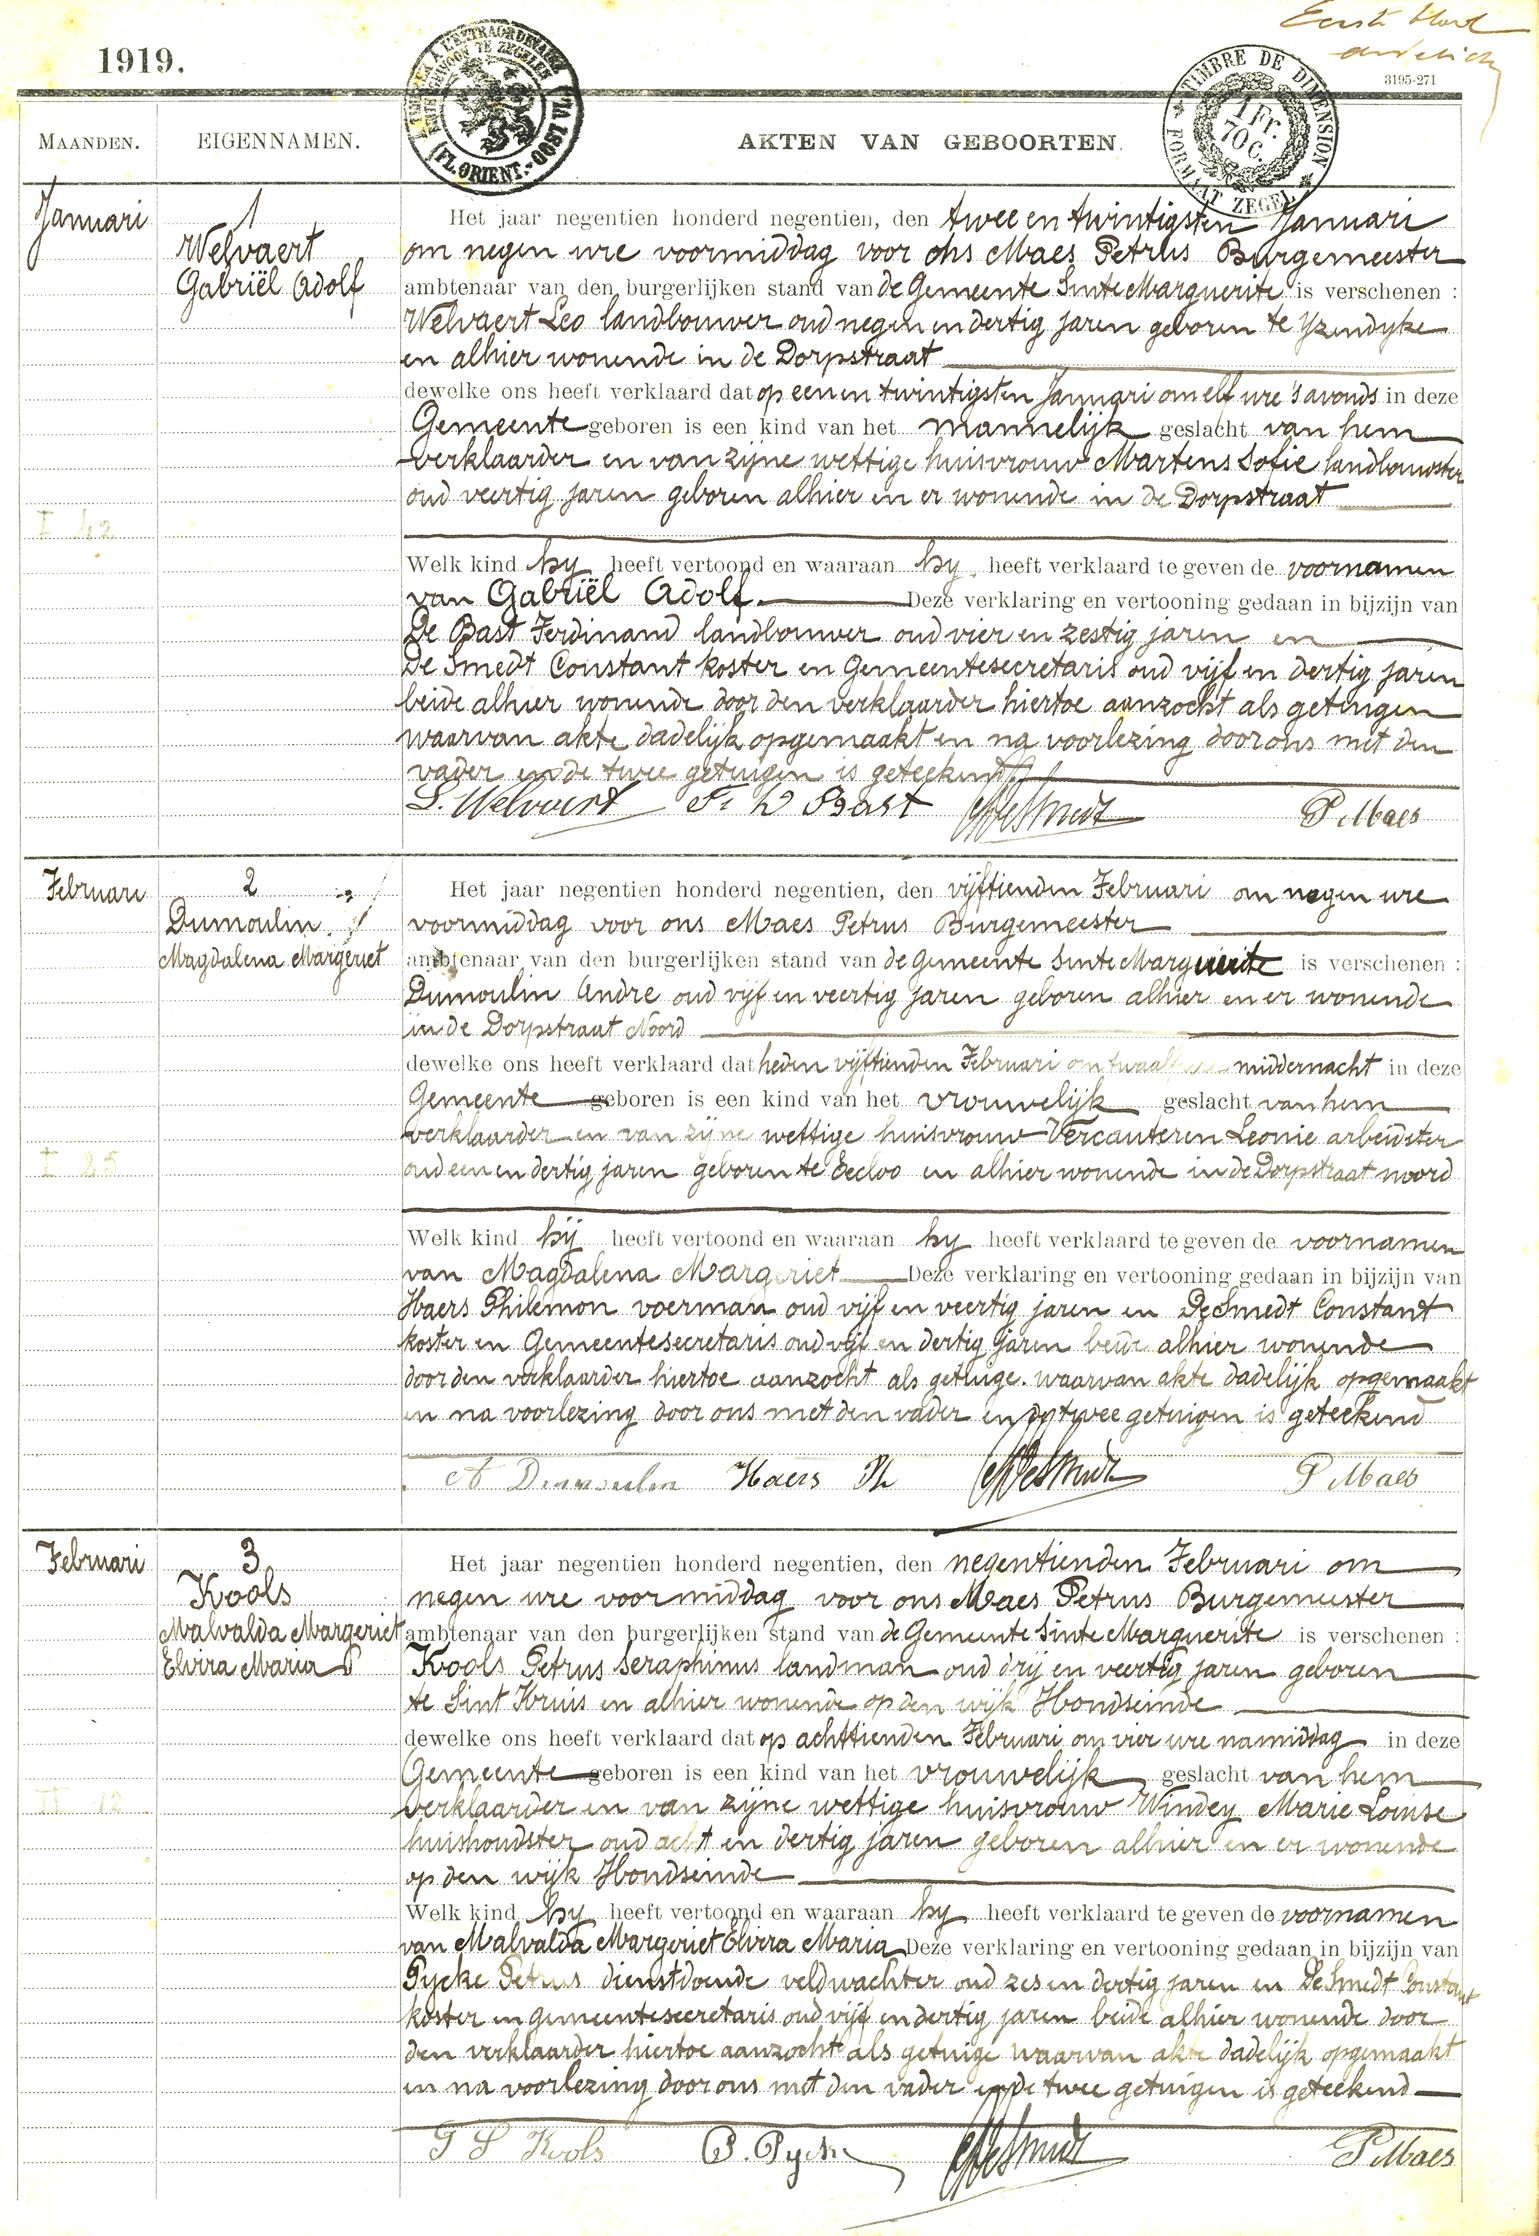 Eerste blad
1919.
3195-271
TIMBRE DE DIMENSION
1 Fr. 70 C.
FORMAAT ZEGEL
(FL. ORIENT.- OOST VL.)
MAANDEN. EIGENNAMEN. AKTEN VAN GEBOORTEN.
Januari
1
Welvaert
Gabriël Adolf
Het jaar negentien honderd negentien, den twee en twintigsten Januari
om negen ure voormiddag voor ons Maes Petrus Burgemeester
ambtenaar van den burgerlijken stand van de Gemeente Sinte Marguerite is verschenen :
Welvaert Leo landbouwer oud negen en dertig jaren geboren te Yzendyke
en alhier wonende in de Dorpstraat
dewelke ons heeft verklaard dat op een en twintigsten Januari om elf ure 's avonds in deze
Gemeente geboren is een kind van het mannelijk geslacht van hem
verklaarder en van zijne wettige huisvrouw Martens Sofie landbouwster
oud veertig jaren geboren alhier en er wonende in de Dorpstraat
I 42
Welk kind hy heeft vertoond en waaraan hy heeft verklaard te geven de voornamen
van Gabriël Adolf. Deze verklaring en vertooning gedaan in bijzijn van
De Bast Ferdinand landbouwer oud vier en zestig jaren en
De Smedt Constant koster en Gemeentesecretaris oud vijf en dertig jaren
beide alhier wonende door den verklaarder hiertoe aanzocht als getuigen
waarvan akte dadelijk opgemaakt en na voorlezing door ons met den
vader en de twee getuigen is geteekend.
L. Welvaert F. D Bast CDeSmedt P Maes
Februari
2
Dumoulin
Magdalena Margeriet
Het jaar negentien honderd negentien, den vijftienden Februari om negen ure
voormiddag voor ons Maes Petrus Burgemeester
ambtenaar van den burgerlijken stand van de Gemeente Sinte Marguerite is verschenen :
Dumoulin Andre oud vijf en veertig jaren geboren alhier en er wonende
in de Dorpstraat Noord
dewelke ons heeft verklaard dat heden vijftienden Februari om twaalf ure middernacht in deze
Gemeente geboren is een kind van het vrouwelijk geslacht van hem
verklaarder en van zijne wettige huisvrouw Vercauteren Leonie arbeidster
oud een en dertig jaren geboren te Eecloo en alhier wonende in de Dorpstraat noord
I 25
Welk kind hij heeft vertoond en waaraan hy heeft verklaard te geven de voornamen
van Magdalena Margeriet Deze verklaring en vertooning gedaan in bijzijn van
Haers Philemon voerman oud vijf en veertig jaren en De Smedt Constant
koster en Gemeentesecretaris oud vijf en dertig jaren beide alhier wonende
door den verklaarder hiertoe aanzocht als getuige. waarvan akte dadelijk opgemaakt
en na voorlezing door ons met den vader en de twee getuigen is geteekend
A Dumoulin Haers Ph CDeSmedt P Maes
Februari
3
Kools
Malvalda Margeriet
Elvira Maria
Het jaar negentien honderd negentien, den negentienden Februari om
negen ure voormiddag voor ons Maes Petrus Burgemeester
ambtenaar van den burgerlijken stand van de Gemeente Sinte Marguerite is verschenen :
Kools Petrus Seraphinus landman oud drij en veertig jaren geboren
te Sint Kruis en alhier wonende op den wijk Hondseinde
dewelke ons heeft verklaard dat op achttienden Februari om vier ure namiddag in deze
Gemeente geboren is een kind van het vrouwelijk geslacht van hem
verklaarder en van zijne wettige huisvrouw Windey Marie Louise
huishoudster oud acht en dertig jaren geboren alhier en er wonende
op den wijk Hondseinde
II 12
Welk kind hy heeft vertoond en waaraan hy heeft verklaard te geven de voornamen
van Malvalda Margeriet Elvira Maria Deze verklaring en vertooning gedaan in bijzijn van
Pycke Petrus dienstdoende veldwachter oud zes en dertig jaren en De Smedt Constant
koster en gemeentesecretaris oud vijf en dertig jaren beide alhier wonende door
den verklaarder hiertoe aanzocht als getuige waarvan akte dadelijk opgemaakt
en na voorlezing door ons met den vader en de twee getuigen is geteekend
P S Kools P. Pycke CDeSmedt P Maes